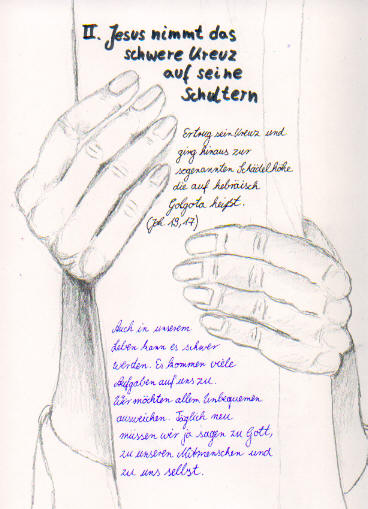 II. Jesus nimmt das
schwere Kreuz
auf seine
Schultern
Er trug sein Kreuz und
ging hinaus zur
sogenannten Schädelhöhe
die auf hebräisch
Golgota heißt.
(Joh. 19,17)
Auch in unserem
Leben kann es schwer
werden. Es kommen viele
Aufgaben auf uns zu.
Wir möchten allem Unbequemen
ausweichen. Täglich neu
müssen wir ja sagen zu Gott,
zu unseren Mitmenschen und
zu uns selbst.